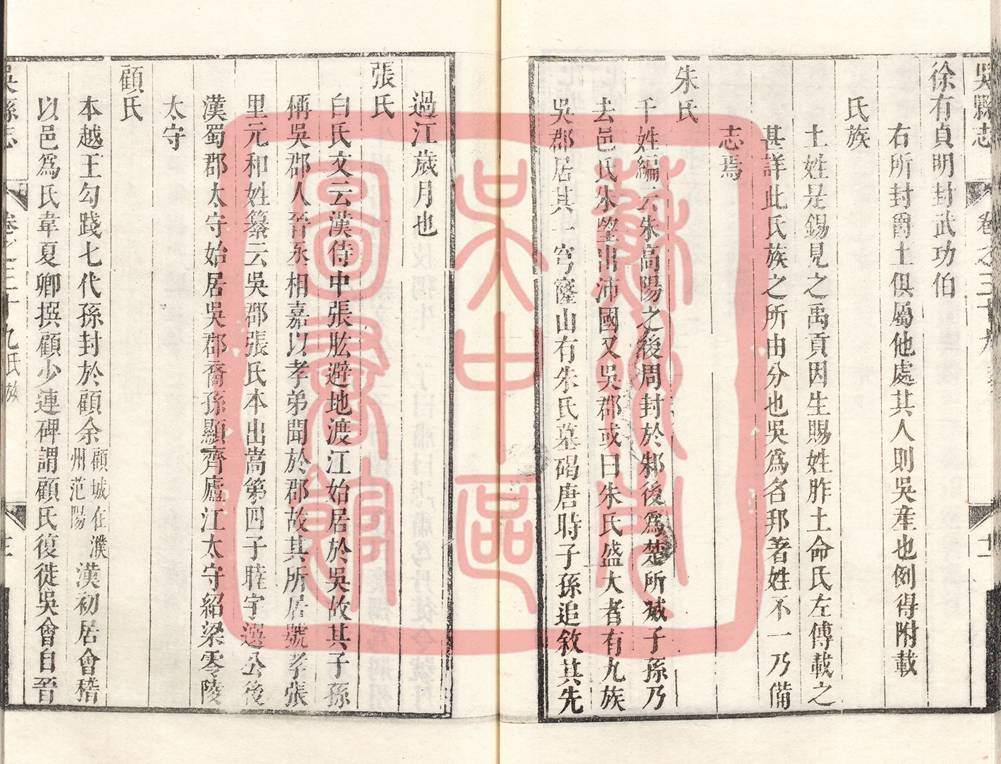 吳縣志 卷之三十九 十一
徐有貞明封武功伯
右所封爵土俱屬他處其人則吳產也例得附載
氏族
土姓是錫見之禹貢因生賜姓胙土命氏左傳載之
甚詳此氏族之所由分也吳為名邦著姓不一乃備
志焉
朱氏
千姓編云朱高陽之後周封於邾後為楚所滅子孫乃
去邑氏朱望出沛國又吳郡或曰朱氏盛大者有九族
吳郡居其一穹窿山有朱氏墓碣唐時子孫追敘其先
過江歲月也
張氏
白氏文云漢侍中張肱避地渡江始居於吳故其子孫
稱吳郡人晉系相嘉以孝弟聞於郡故其所居號孝張
里元和姓纂云吳郡張氏本出嵩第四子睦字選公後
漢蜀郡太守始居吳郡裔孫顯齊廬江太守紹梁零陵
太守
顧氏
本越王勾踐七代孫封於顧余顧城在濮州范陽漢初居會稽
以邑為氏韋夏卿撰顧少連碑謂顧氏復徙吳會自晉
吳縣志 卷之三十九氏族
蘇州市吳中區圖書館